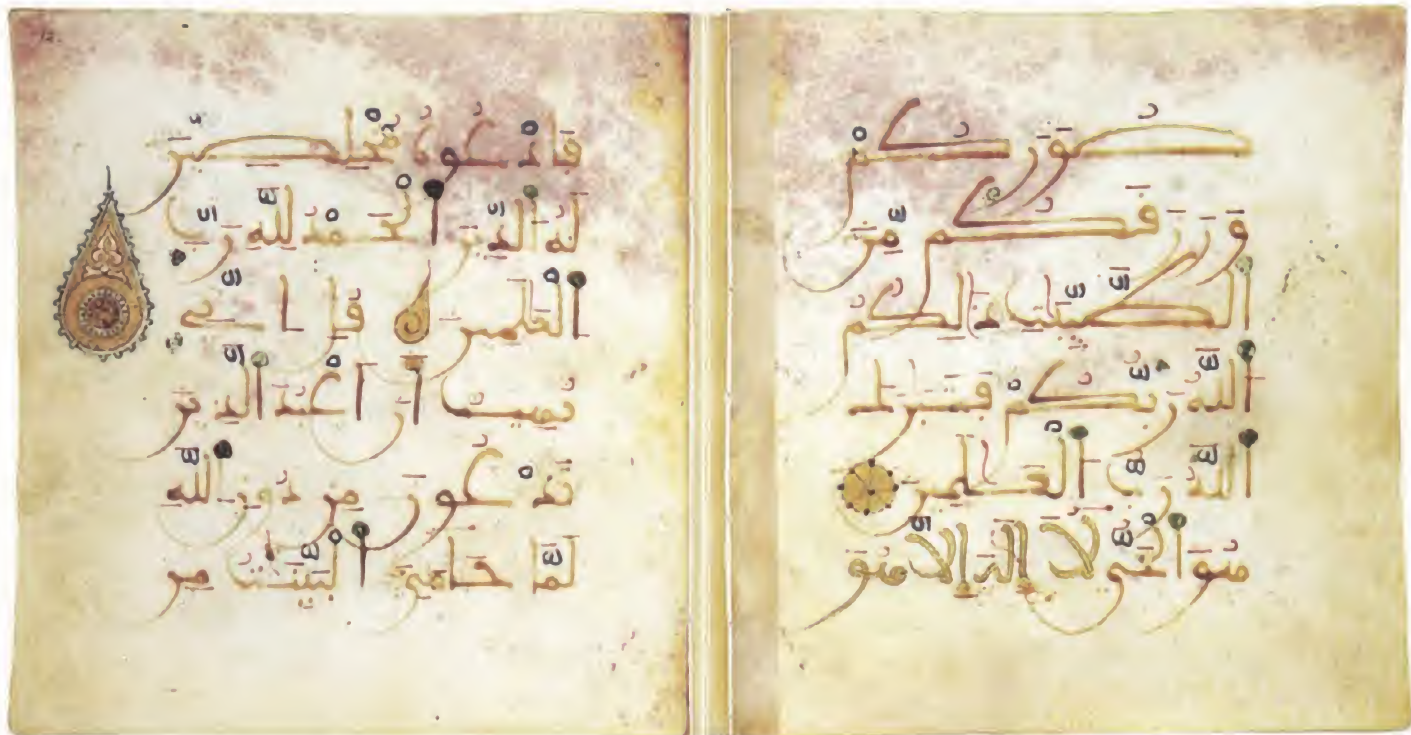 صُوَرَكُمْ
وَرَزَقَكُم مِّنَ
ٱلطَّيِّبَٰتِ ذَٰلِكُمُ
ٱللَّهُ رَبُّكُمْ فَتَبَٰرَكَ
ٱللَّهُ رَبُّ ٱلْعَٰلَمِينَ
هُوَ ٱلْحَيُّ لَا إِلَٰهَ إِلَّا هُوَ
فَٱدْعُوهُ مُخْلِصِينَ
لَهُ ٱلدِّينَ ٱلْحَمْدُ لِلَّهِ رَبِّ
ٱلْعَٰلَمِينَ قُلْ إِنِّي
نُهِيتُ أَنْ أَعْبُدَ ٱلَّذِينَ
تَدْعُونَ مِن دُونِ ٱللَّهِ
لَمَّا جَاءَنِيَ ٱلْبَيِّنَٰتُ مِن